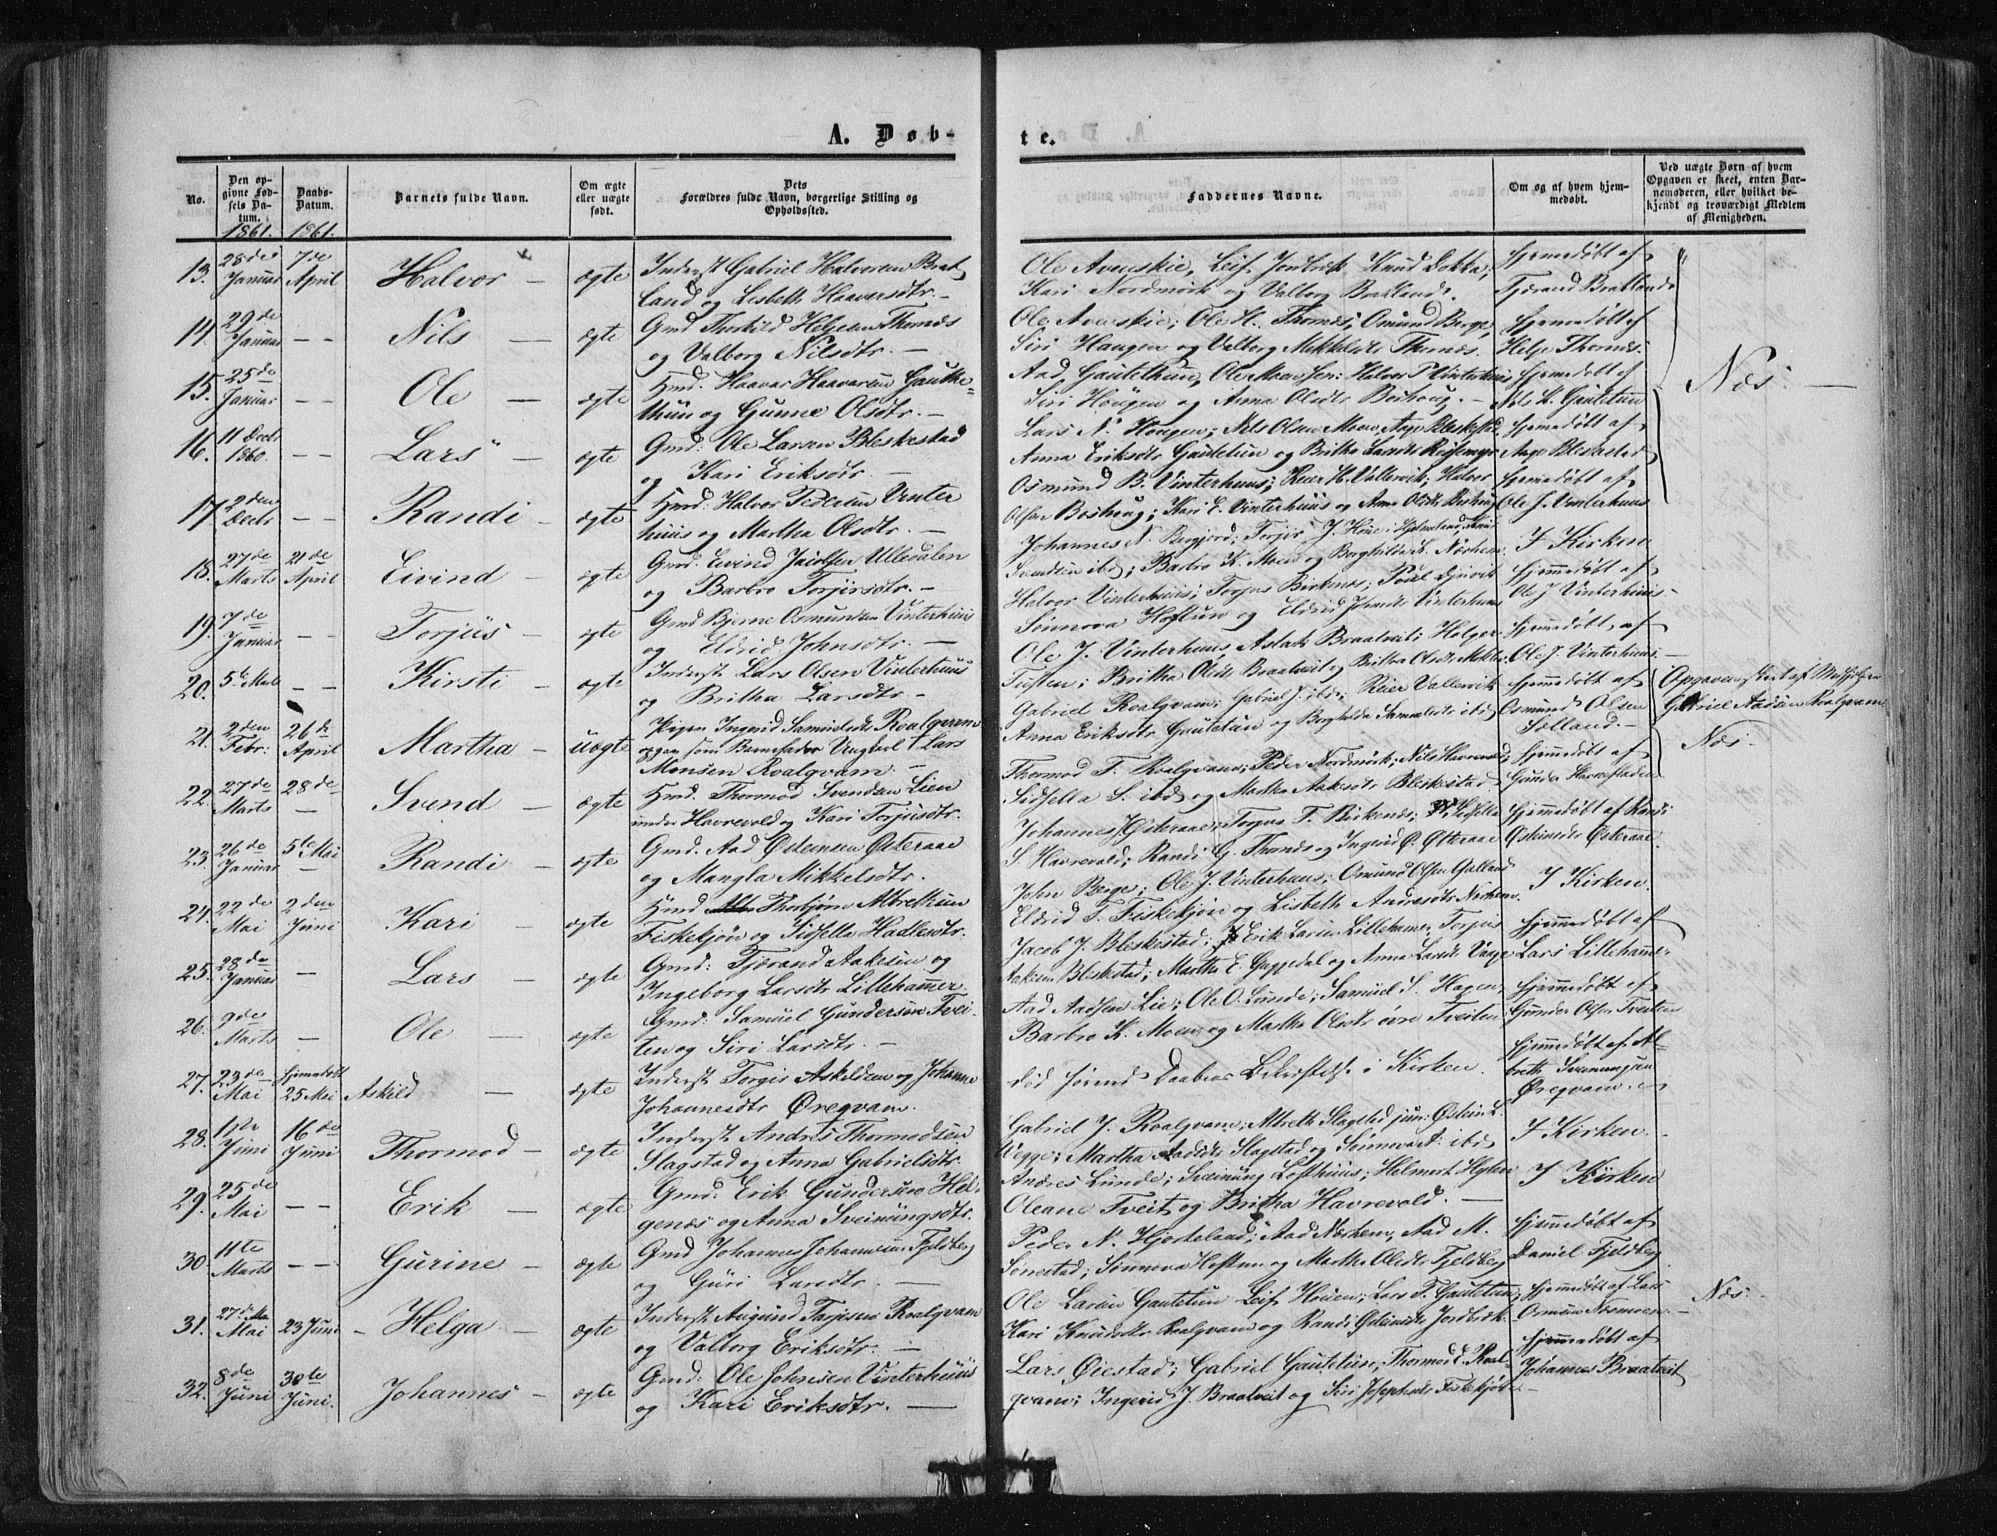 A. Døb-
te.
No.
Den op-
givne Fød-
sels Da-
tum.
1861.
Daabs-
Datum.
1861.
Barnets fulde Navn.
Om ægte
eller uægte
født.
Dets
Forældres fulde Navn, borgerlige Stilling og
Opholdssted.
Faddernes Navne.
Om og af hvem hjem-
medøbt.
Ved uægte Børn af hvem
Opgaven er skeet, enten Bar-
nemoderen, eller hvilket be-
kjendt og troværdigt Medlem
af Menigheden.
13. 28de Januar 7de April Halvor — ægte Inderst Gabriel Halvorsen Brat
land og Lisbeth Haaversdtr. —
Ole Kari Nordmork og Valborg Bratlands.
Hjemedøbt af
Tjærand Bratland
14. 29de Januar — — Nils — ægte Gmd Thorkild Helgesen Thornes
og Valborg Nilsdtr. —
Ole H. Thornes; Omund Berge,
Siri Haugen og Valborg Mikkelsdtr Thornes.
Hjemedøbt af
Helge Thornes.
15. 25de Januar — — Ole — ægte Hmd. Haavar Haavarsen Gautte-
thun og Gunne Olsdtr. —
Aad Gautethun, Ole Moen jun: Halvor P Vinterhuus
Siri Hougen og Anna Olsdtr Boshoug. —
Hjemedøbt af
Nils L. Gautetun
Næs: —
16. 11 Decbr 1860. — — Lars — ægte Gmd. Ole Larsen Bleskestad
og Kari Eriksdtr. —
Lars N. Hougen; Nils Olsen Moen, Aage Bleskestad,
Anna Eriksdtr Gautetun og Britha Larsdtr
Hjemedøbt af
Aage Bleskestad
17. 2den Decbr — — Randi — ægte Hmd: Halvor Pedersen Vinter
huus og Martha Olsdtr. —
Osmund B. Vinterhuus; Reier H. Vallervik; Halvor
Olsen Boshoug; Kari E. Vinterhuus og Anna Olsdtr Boshoug
Hjemedøbt af
Ole J. Vinterhuus
18. 27de Marts 21de April Eivind — ægte Gmd. Eivind Jacobsen Ulledalen
og Barbro Torjersdtr. —
Johannes N. Bergjord; Torjer J. Hoie;
Svendsen ibd; Barbro K. Moen og Borghilda S. Nerhem
I Kirken
19. 7de Januar — — Torjüs — ægte Gmd Bjerne Osmundsen Vinterhuus
og Eldrid Johnsdtr. —
Halvor Vinterhuus; Torjus Birkenes; Poul
Sønnova Hoftun og Eldrid Johansdtr Vinterhuus
Hjemmedøbt af
Ole J. Vinterhuus. —
20. 5te Marts — — Kirsti — ægte Inderst Lars Olsen Vinterhuus
og Britha Larsdtr. —
Ole J. Vinterhuus, Aslak Braatveit; Holger
Tusten; Britha Olsdtr Braatveit og Britha Olsdtr
Hjemedøbt af
Ole J. Vinterhuus. —
21. 2den Febr: 26de April Martha — uægte Pigen Ingerid Samuelsdtr Roalqvam
opgav som Barnefader Ungkarl Lars
Monsen Roalqvam. —
Gabriel Roalqvam; Gabriel J. ibd; Reier Vallervik
Anna Eriksdtr Gautetun og Borghilda Samuelsdtr ibd
Hjemedøbt af
Osmund Olsen
Sølland —
Opgaven skeet af
Gabriel Roalqvam
Næs
22. 27de Marts 28de — Svend — ægte Hmd. Thormod Svendsen Lien
under Havrevold og Kari Torjusdtr.
Thormod T. Roalqvam; Peder Nordmork; Nils Havrevold;
Sidsella S. ibd og Martha Aakesdtr Bleskestad
Hjemedøbt af
Gunder
23. 26de Januar 5te Mai — Randi — ægte Gmd. Aad Østensen Østeraae
og Mangla Mikkelsdtr. —
Johannes Østeraae; Torjus T. Birkenes; Sidsella
S. Havrevold; Randi G. Thornes og Ingerid Ø. Østeraae
Hjemmedøbt af Randi
Østeraae.
24. 22de Mai 2den Juni Kari — ægte Hmd Thorbjørn Albretsen
Fiskekjøn og Sidsella Hadlesdtr.
John Berge; Ole J. Vinterhuus; Omund Olsen
Eldrid T. Fiskekjøn og Lisbeth Andresdtr Nerhem
I Kirken.
25. 28de Januar — Lars — ægte Gmd: Tjærand Aakesen og
Ingeborg Larsdtr Lillehammer.
Jacob J. Bleskestad; Erik Larsen Lillehammer, Torjus
Aakesen Bleskestad; Martha E. Guggedal og Anna Larsdtr
Hjemmedøbt af
Lars Lillehammer
26. 9de Marts — Ole — ægte Gmd: Samuel Gundersen Tvei-
ten og Siri Larsdtr. —
Aad Aadsen Lie; Ole O. Lunde; Samuel S. Hagen,
Barbro K. Moen, og Martha Olsdtr øvre Tveiten
Hjemmedøbt af
Gunder Olsen Tveiten
27. 23de Mai Hjemedøbt 25 Mai Askild — ægte Inderst Torgis Askildsen og Johanne
Johannesdtr Øreqvam.
død førend Daabens Bekræftelse i Kirken.
Hjemmedøbt af Al-
breth Sveinungsen
Øreqvam. —
28. 1ste Juni 16de Juni Thormod — ægte Inderst Andres Thormodsen
Slagstad og Anna Gabrielsdtr.
Gabriel J. Roalqvam; Albreth Slagstad jun: Østen L.
Vegge; Martha Slagstad og Sønnova A. ibd
I Kirken.
29. 25de Mai — — Erik — ægte Gmd: Erik Gundersen Hel-
genæs og Anna Sveinungsdtr.
Andres Lunde; Sveinung Lofthuus; Helmert
Oleane Tveit og Britha Havrevold. —
I Kirken
30. 11te Marts — — Gurine — ægte Gmd Johannes Johannesen Fjelberg
og Guri Larsdtr. —
Peder N. Hjorteland; Aad Nerhem, Aad M.
Sønestad; Sønnova Hoftun og Martha Olsdtr Fjelberg
Hjemmedøbt af
Daniel Fjeldberg
31. 27de Mai 23 Juni — Helga — ægte Inderst Augund Tarjesen Roalqvam
og Valborg Eriksdtr. —
Ole Larsen Gautetun Leif Houen; Lars T. Gautetun;
Kari Knudsdtr Roalqvam og Randi Jordbræk
Hjemmedøbt af Lars
Næsmoen. —
Næs.
32. 8de Juni 30te Juni. Johannes — ægte Gmd: Ole Johnsen Vinterhuus
og Kari Eriksdtr. —
Lars Øiestad; Gabriel Gautetun; Thormod E. Roal-
qvam; Ingerid J. Braatveit og Siri Josephsdtr Fiskekjøn
Hjemmedøbt af
Johannes Braatveit